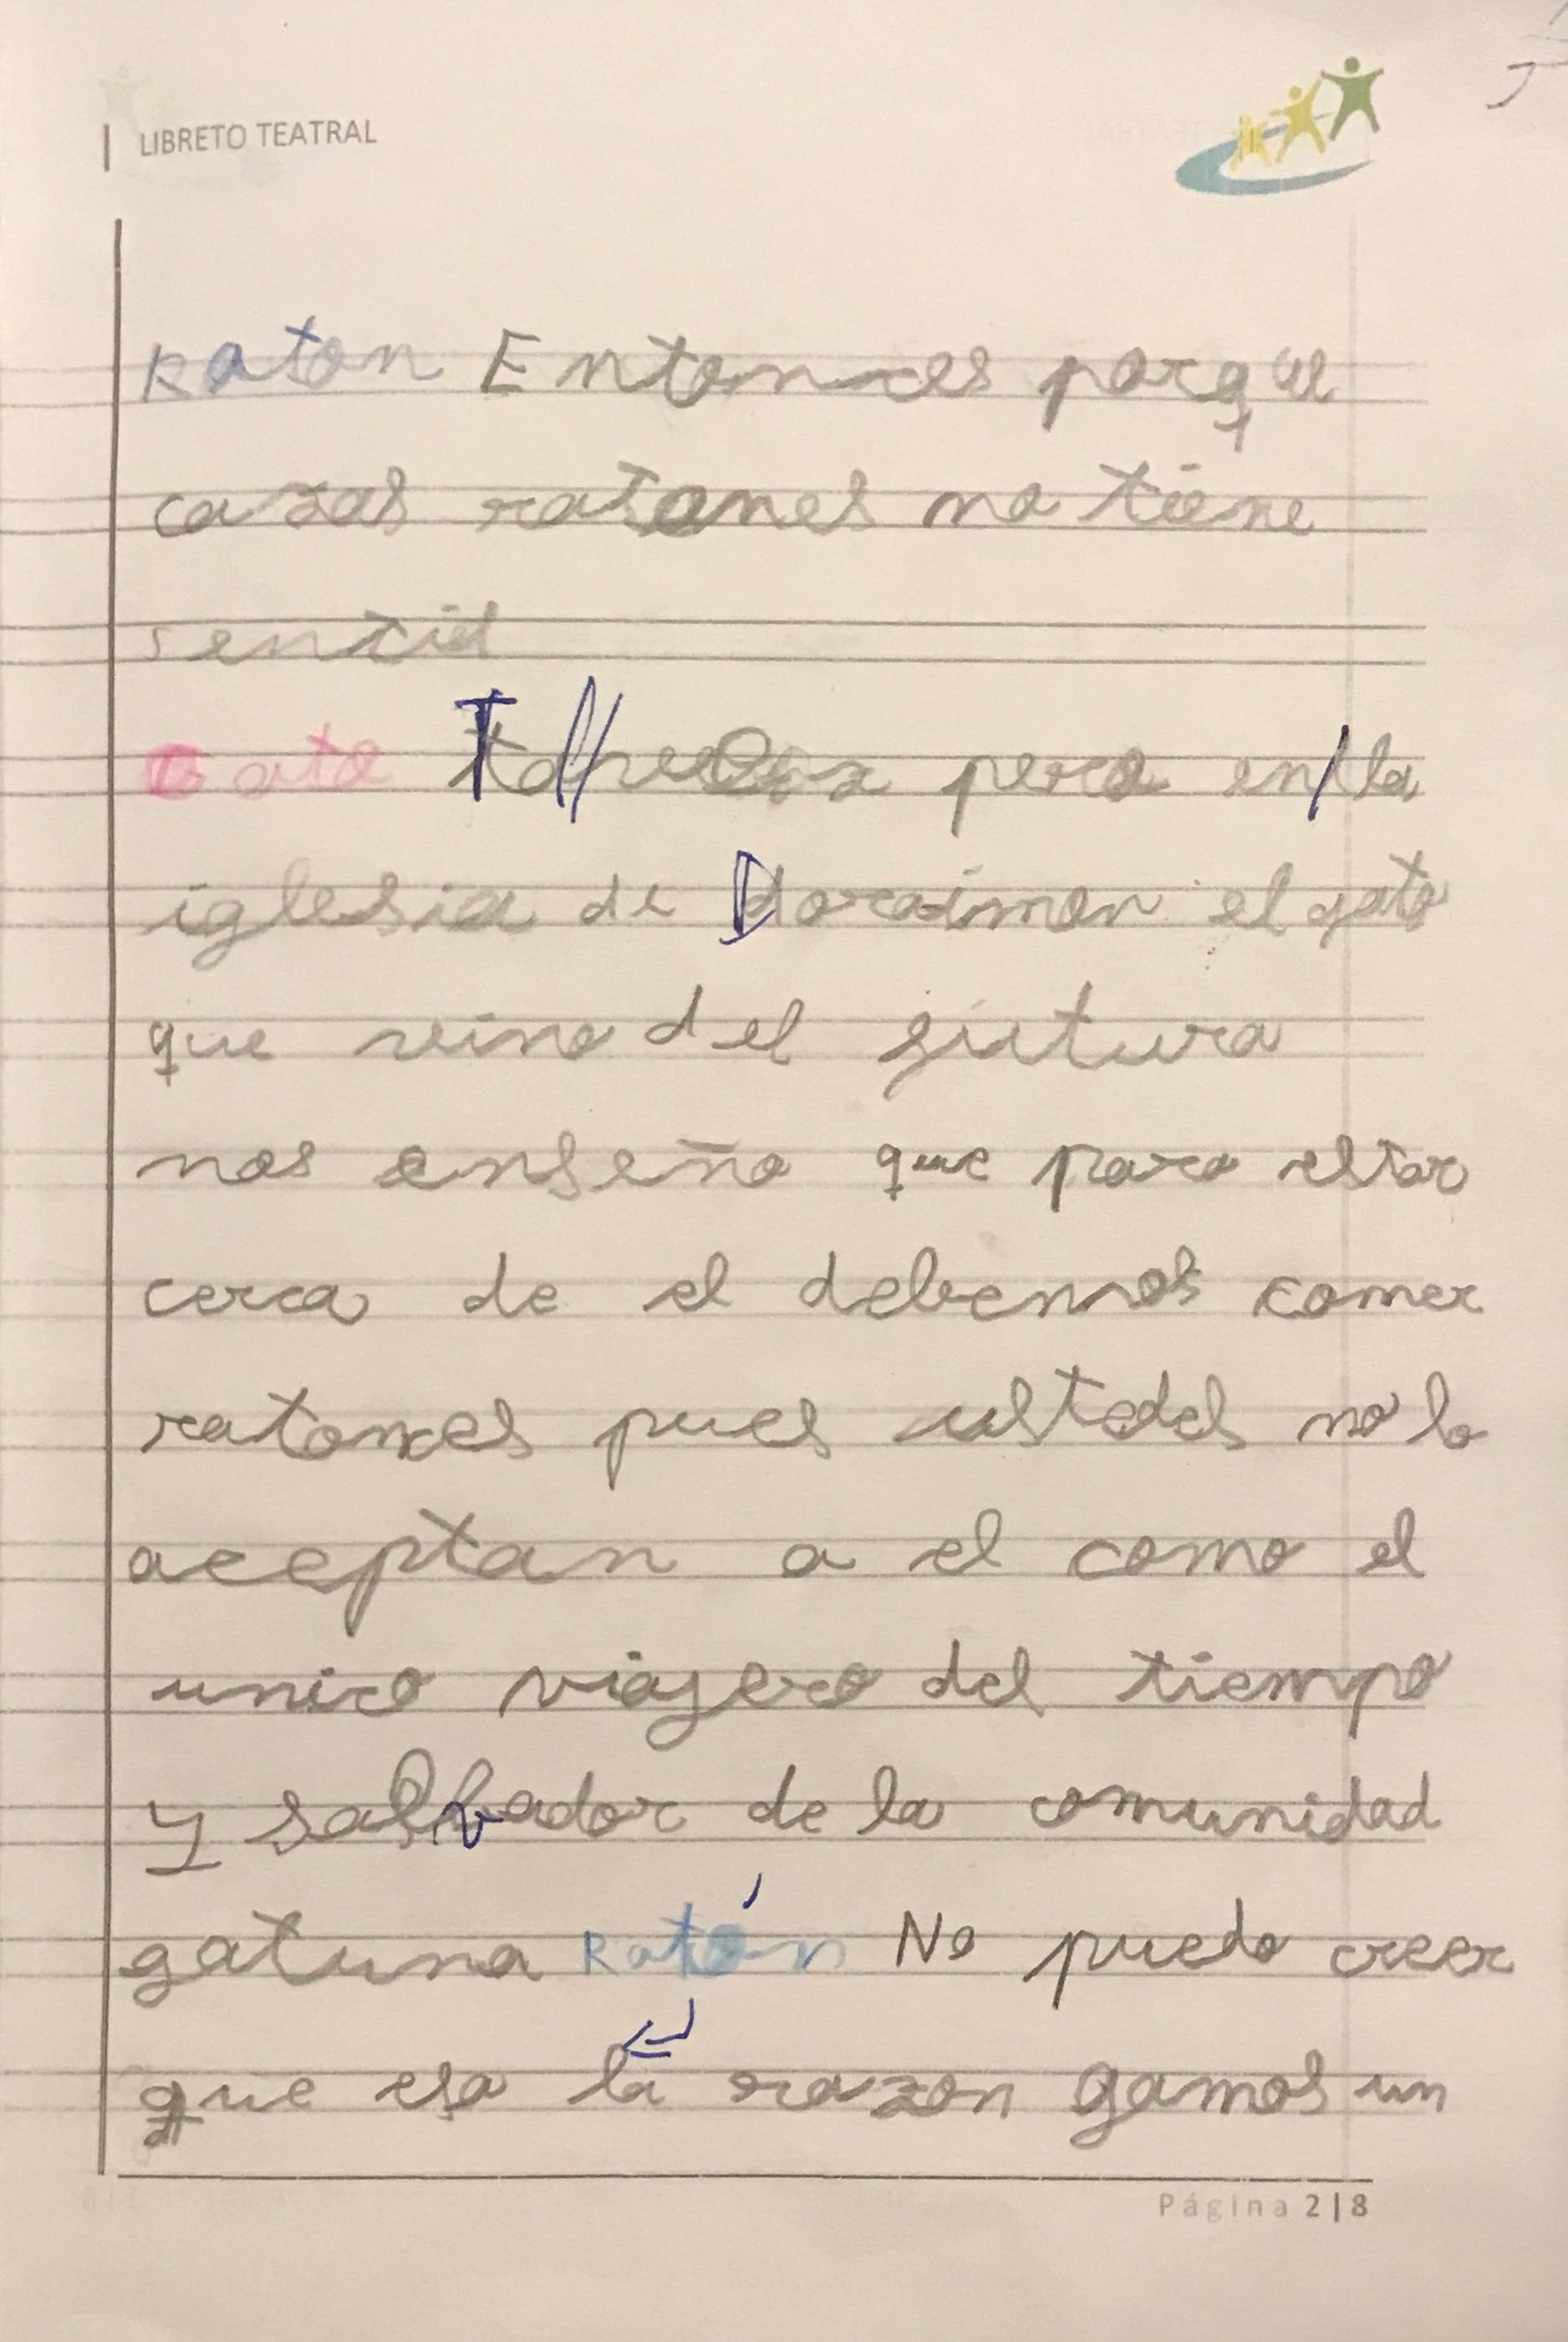 LIBRETO TEATRAL
Raton Entonces porque
casas ratones no tiene
sentid
Gato pero en la
iglesia de Doraimon el gato
que vino del
nos enseño que para estar
cerca de el debemos comer
ratones pues ustedes no lo
aceptan a el como el
unico viajero del tiempo
y salvador de la comunidad
gatuna Ratón No puedo creer
que esa la razon gamos un
Página 2|8